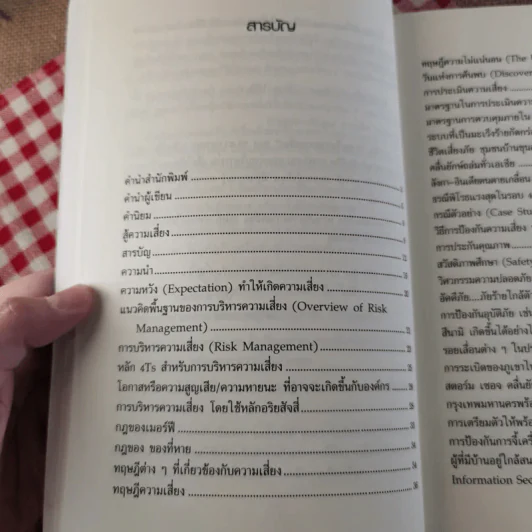 สารบัญ
คำนำสำนักพิมพ์
คำนำผู้เขียน
คำนิยม
สู้ความเสี่ยง
สารบัญ
ความนำ
ความหวัง (Expectation) ทำให้เกิดความเสี่ยง
แนวคิดพื้นฐานของการบริหารความเสี่ยง (Overview of Risk
Management)
การบริหารความเสี่ยง (Risk Management)
หลัก 4Ts สำหรับการบริหารความเสี่ยง
โอกาสหรือความสูญเสีย/ความหายนะ ที่อาจจะเกิดขึ้นกับองค์กร
การบริหารความเสี่ยง โดยใช้หลักอริยสัจสี่
กฎของเมอร์ฟี
กฎของ ของที่หาย
ทฤษฎีต่าง ๆ ที่เกี่ยวข้องกับความเสี่ยง
ทฤษฎีความเสี่ยง
ทฤษฎีความไม่แน่นอน (The
วันแห่งการค้นพบ (Discover
การประเมินความเสี่ยง
มาตรฐานในการประเมินความ
มาตรฐานการควบคุมภายใน
ระบบที่เป็นมะเร็งร้ายกัดกร่
ชีวิตเสี่ยงภัย ชุมชนบ้านขุน
คลื่นยักษ์ถล่มทั่วเอเชีย
ลังกา-อินเดียตนตายเกลื่อน
กรณีตัวอย่าง (Case Stu
วิธีการป้องกันความเสี่ยง
การประกันคุณภาพ
สวัสดิภาพศึกษา (Safety
วิศวกรรมความปลอดภัย
อัคคีภัย....ภัยร้ายใกล้ตัว
การป้องกันอุบัติภัย เช่น
สึนามิ เกิดขึ้นได้อย่างไร
รอยเลื่อนต่าง ๆ ในประ
การระเบิดของภูเขาไฟ
สตอร์ม เซอจ คลื่นยั
กรุงเทพมหานครพร้อ
การเตรียมตัวให้พร้อ
การป้องกันการจี้เครื่
ผู้ที่มีบ้านอยู่ใกล้สน
Information Sec